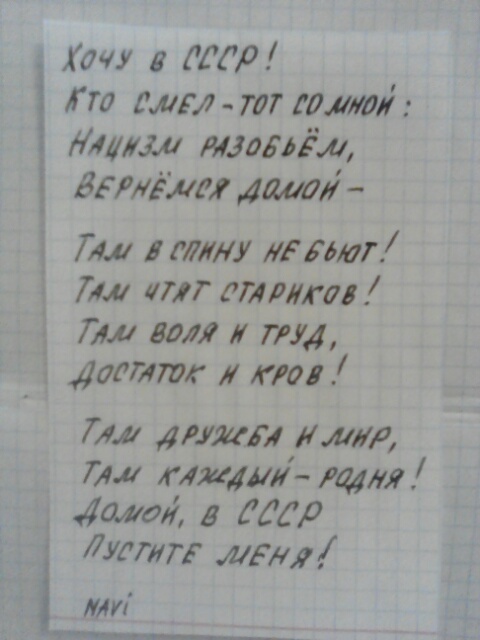 Хочу в СССР!
Кто смел - тот со мной:
Нацизм разобьём,
Вернёмся домой -
Там в спину не бьют!
Там чтят стариков!
Там воля и труд,
Достаток и кров!
Там дружба и мир,
Там каждый - родня!
Домой, в СССР
Пустите меня!
NAVi